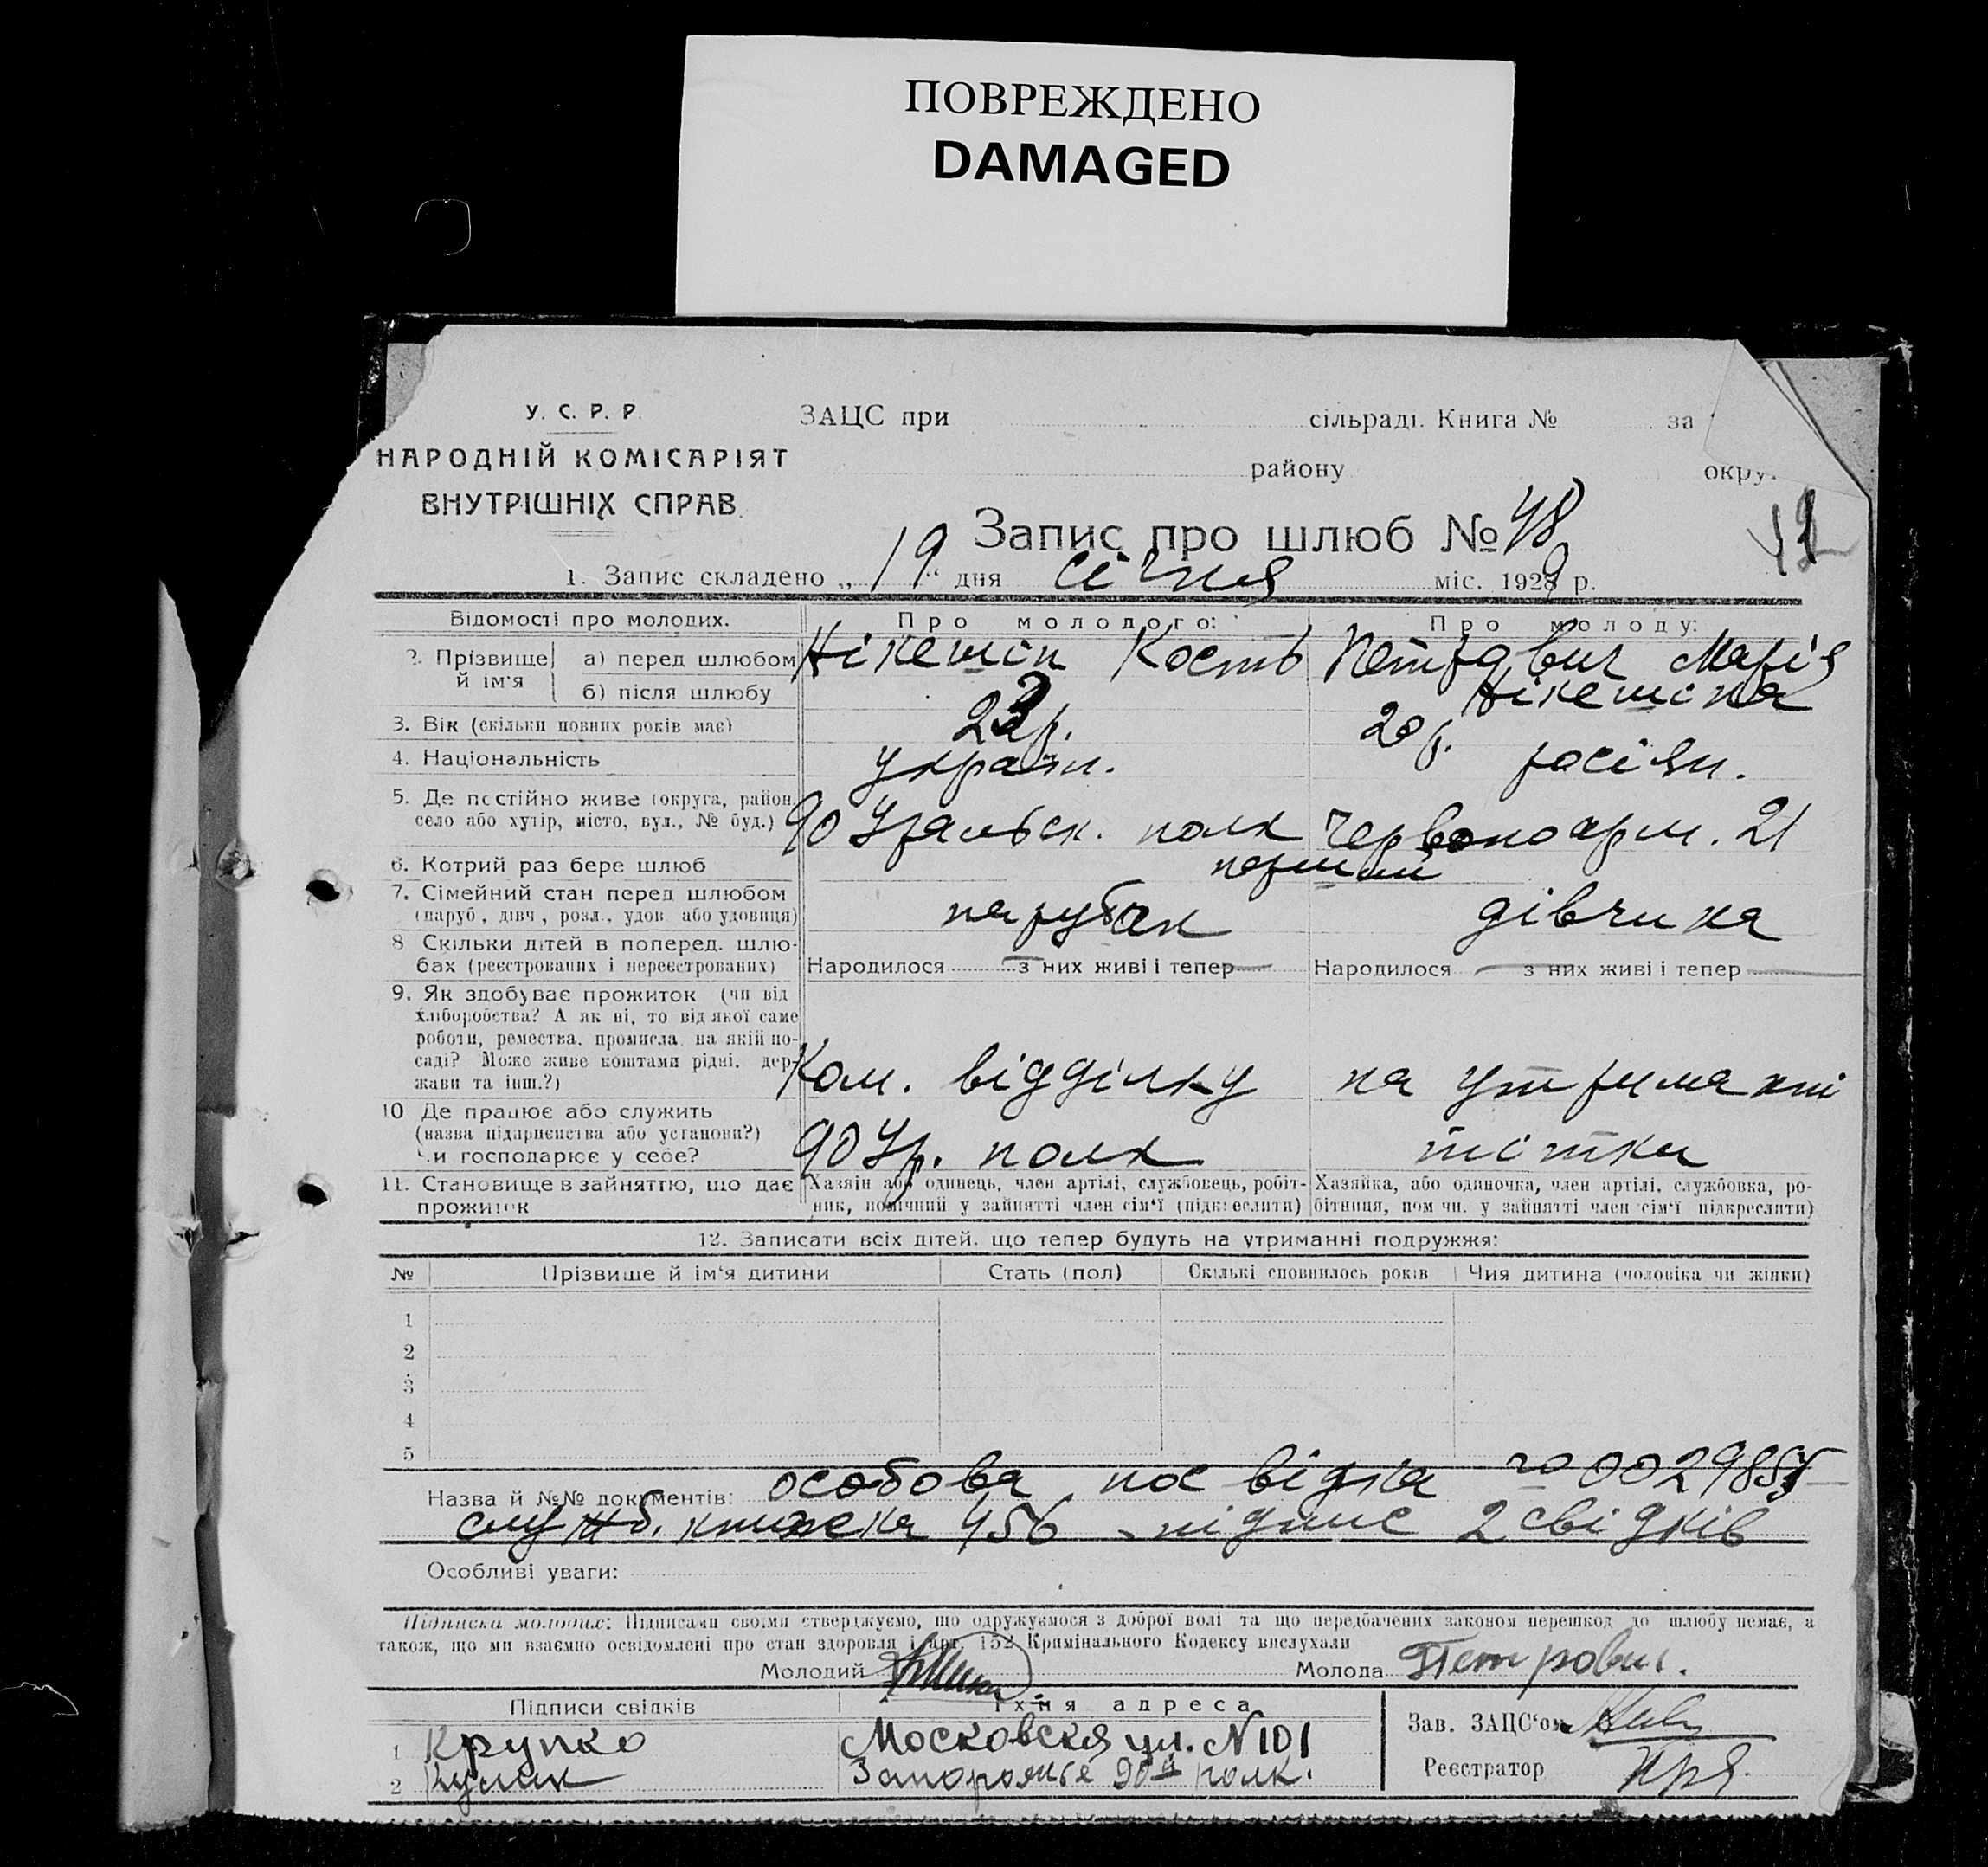 ПОВРЕЖДЕНО
DAMAGED
У. С. Р. Р.
НАРОДНІЙ КОМІСАРІЯТ
ВНУТРІШНІХ СПРАВ.
ЗАЦС при сільраді. Книга № за
району окру
Запис про шлюб № 48
42
1. Запис складено „ 19 “ дня січня міс. 1929 р.
Відомості про молодих. Про молодого: Про молоду:
2. Прізвище й ім'я
а) перед шлюбом Нікетін Кость Петрович Марія
б) після шлюбу Нікетіна
3. Вік (скільки повних років має) 23 р. 20 р.
4. Національність україн. росіян.
5. Де постійно живе (округа, район, село або хутір, місто, вул., № буд.) 90 Уральск. полк Червоноарм. 21
6. Котрий раз бере шлюб перший
7. Сімейний стан перед шлюбом (паруб., дівч., розл., удов. або удовиця) парубок дівчина
8 Скільки дітей в поперед. шлюбах (реєстрованих і нереєстрованих) Народилося з них живі і тепер Народилося з них живі і тепер
9. Як здобуває прожиток (чи від хліборобства? А як ні, то від якої саме роботи, ремества, промисла, на якій посаді? Може живе коштами рідні, держави та інш.?) Ком. відділку на утриманні
10 Де працює або служить (назва підприємства або установи?) Чи господарює у себе? 90 Ур. полк тітки
11. Становище в зайняттю, що дає прожиток
Хазяін або одинець, член артілі, службовець, робітник, помічний у зайнятті член сім'ї (підкреслити)
Хазяйка, або одиночка, член артілі, службовка, робітниця, помічн. у зайнятті член сім'ї підкреслити)
12. Записати всіх дітей, що тепер будуть на утриманні подружжя:
№ Прізвище й ім'я дитини Стать (пол) Скількі сповнилось років Чия дитина (чоловіка чи жінки)
1
2
3
4
5
Назва й №№ документів: особова посвідка
служб. книжка 456 підпис 2 свідків
Особливі уваги:
Підписка молодих: Підписами своїми стверджуємо, що одружуємося з доброї волі та що передбачених законом перешкод до шлюбу немає, а
також, що ми взаємно освідомлені про стан здоровля і арт. 152 Кримінального Кодексу вислухали
Молодий Молода Петрович.
Підписи свідків Їхня адреса
1 Крупко Московская ул. N 101
2 Кулик Запорожье 90й полк.
Зав. ЗАЦС'ом
Реєстратор